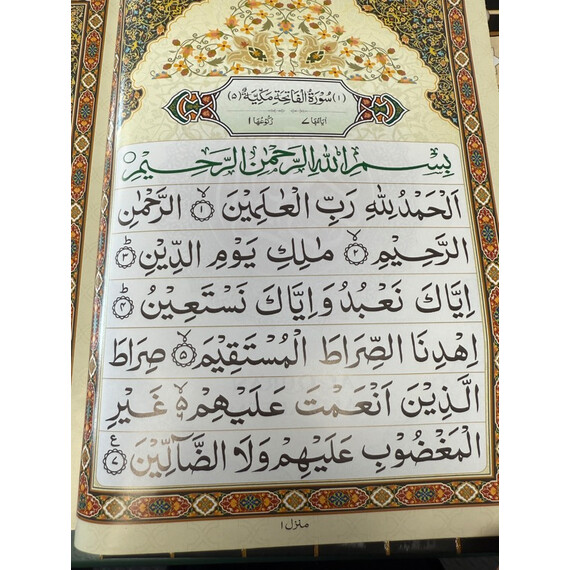 (۱) سُوْرَةُ الْفَاتِحَةِ مَكِّيَّةٌ (۵)
اٰيَاتُهَا ۷ رُكُوْعُهَا ۱
بِسْمِ اللّٰهِ الرَّحْمٰنِ الرَّحِيْمِ
اَلْحَمْدُ لِلّٰهِ رَبِّ الْعٰلَمِيْنَ ۙ﴿۱﴾ الرَّحْمٰنِ
الرَّحِيْمِ ۙ﴿۲﴾ مٰلِكِ يَوْمِ الدِّيْنِ ؕ﴿۳﴾
اِيَّاكَ نَعْبُدُ وَ اِيَّاكَ نَسْتَعِيْنُ ؕ﴿۴﴾
اِهْدِنَا الصِّرَاطَ الْمُسْتَقِيْمَ ۙ﴿۵﴾ صِرَاطَ
الَّذِيْنَ اَنْعَمْتَ عَلَيْهِمْ ۙ۬ غَيْرِ
الْمَغْضُوْبِ عَلَيْهِمْ وَلَا الضَّآلِّيْنَ ﴿۷﴾ ع
منزل ۱